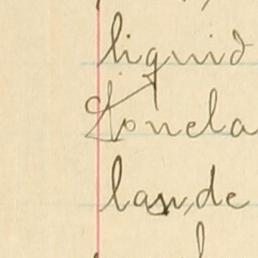 liquid
tonela
lan, de